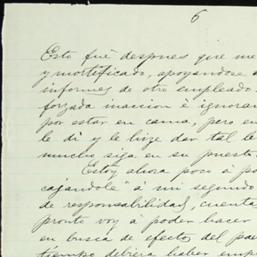 6
Esto fué despues que me
y mortificado, apoyandose
informes de otro empleado
forzada inaccion é ignoran
por estar en cama, pero en
le di y le hize dar tal le
mucho siga en su puesto
Estoy ahora poco á po
cajándole" á mi segundo
de responsabilidad, cuenta
pronto voy á poder hacer
en busca de efectos del pais
tiempo debiera haber emp